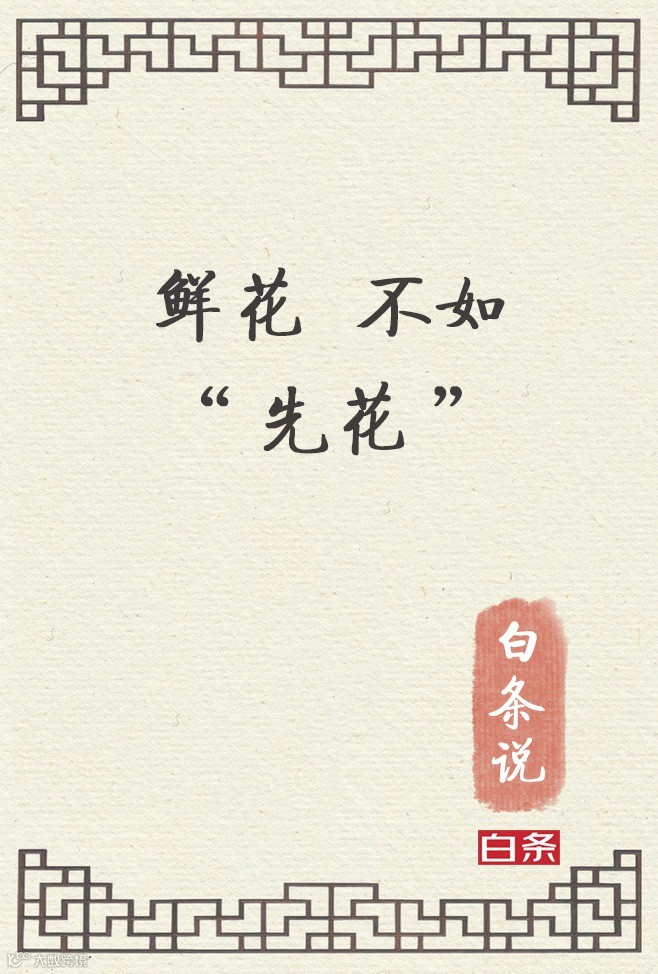 鲜花 不如
“先花”
白条说
白条
大数跨境